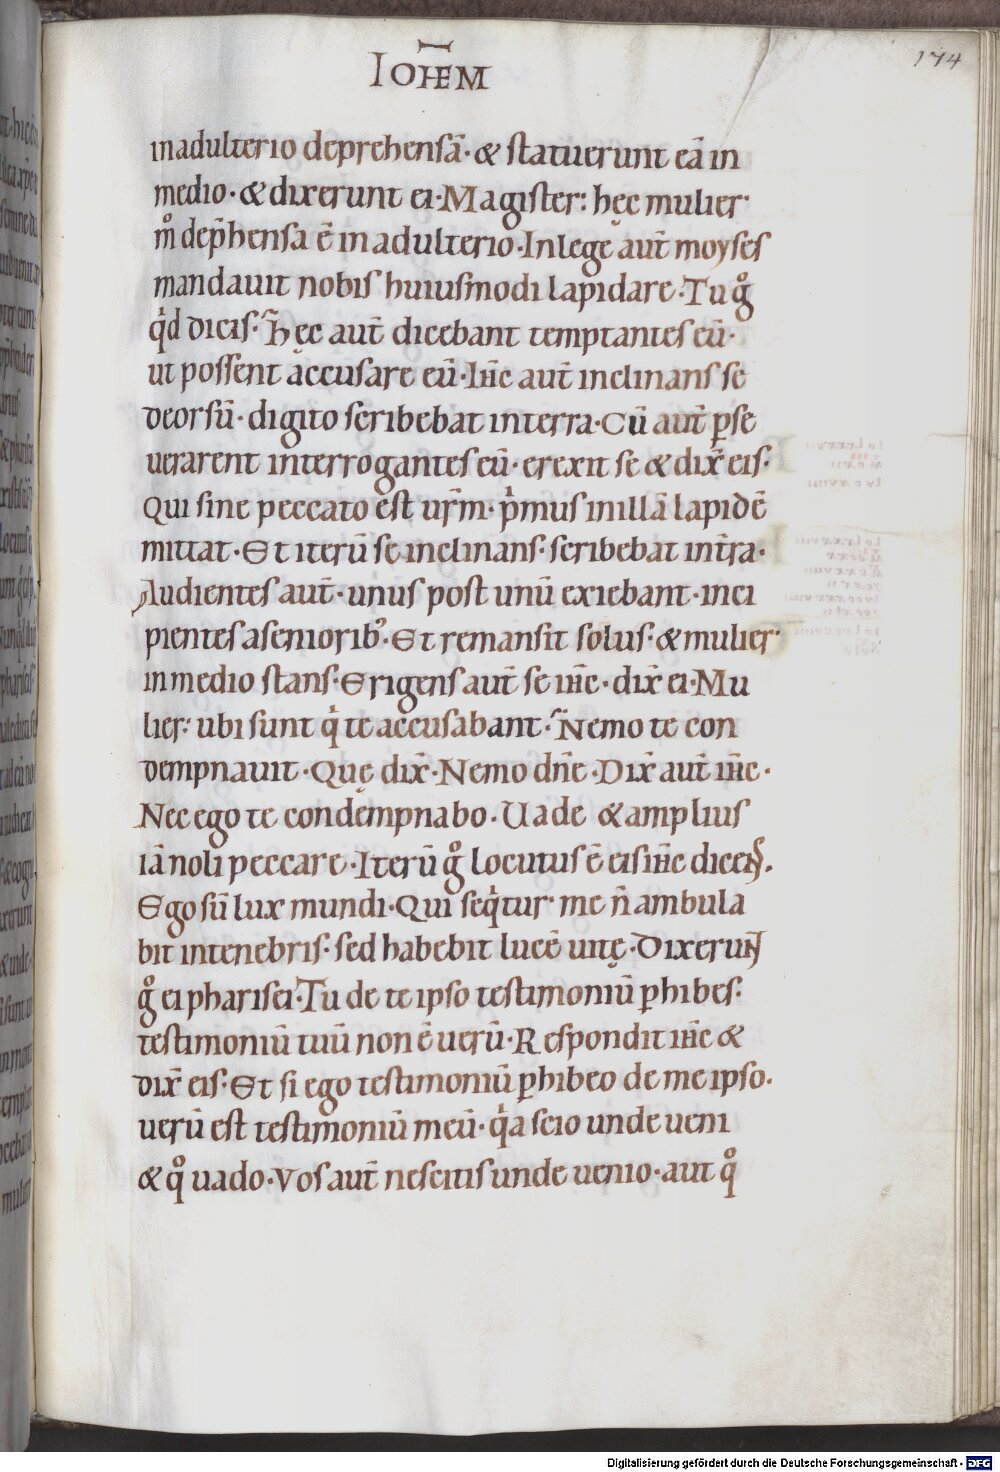 IOHEM̅
174
in adulterio deprehensā· & statuerunt eā in
medio· & dixerunt ei· Magister: hęc mulier
m̊ dep̄hensa ē in adulterio· In lege aut̄ moyses
mandauit nobis huiusmodi lapidare· Tu g̊
qͥd dicis· Hęc aut̄ dicebant temptantes eū·
ut possent accusare eū· Ih̄c aut̄ inclinans se
deorsū· digito scribebat in terra· Cū aut̄ ꝑse
uerarent interrogantes eū· erexit se & dix̄ eis·
Qui sine peccato est ur̄m· pͥmus in illā lapidē
mittat· Et iterū se inclinans· scribebat in t̄ra·
Audientes aut̄· unus post unū exiebant· inci
pientes a seniorib᷒· Et remansit solus· & mulier
in medio stans· Erigens aut̄ se ih̄c· dix̄ ei· Mu
lier: ubi sunt qͥ te accusabant· Nemo te con
dempnauit· Quę dix̄· Nemo dn̄e· Dix̄ aut̄ ih̄c·
Nec ego te condempnabo· Uade & amplius
iā noli peccare· Iterū g̊ locutus ē eis ih̄c dicens·
Ego sū lux mundi· Qui seqͥtur me n̄ ambula
bit in tenebris· sed habebit lucē uitę· Dixerunt
g̊ ei pharisei· Tu de te ipso testimoniū ꝑhibes:
testimoniū tuū non ē uerū· Respondit ih̄c &
dix̄ eis· Et si ego testimoniū ꝑhibeo de me ipso·
uerū est testimoniū meū· qͥa scio unde ueni
& qͦ uado· Vos aut̄ nescitis unde uenio· aut qͦ
Digitalisierung gefördert durch die Deutsche Forschungsgemeinschaft - DFG